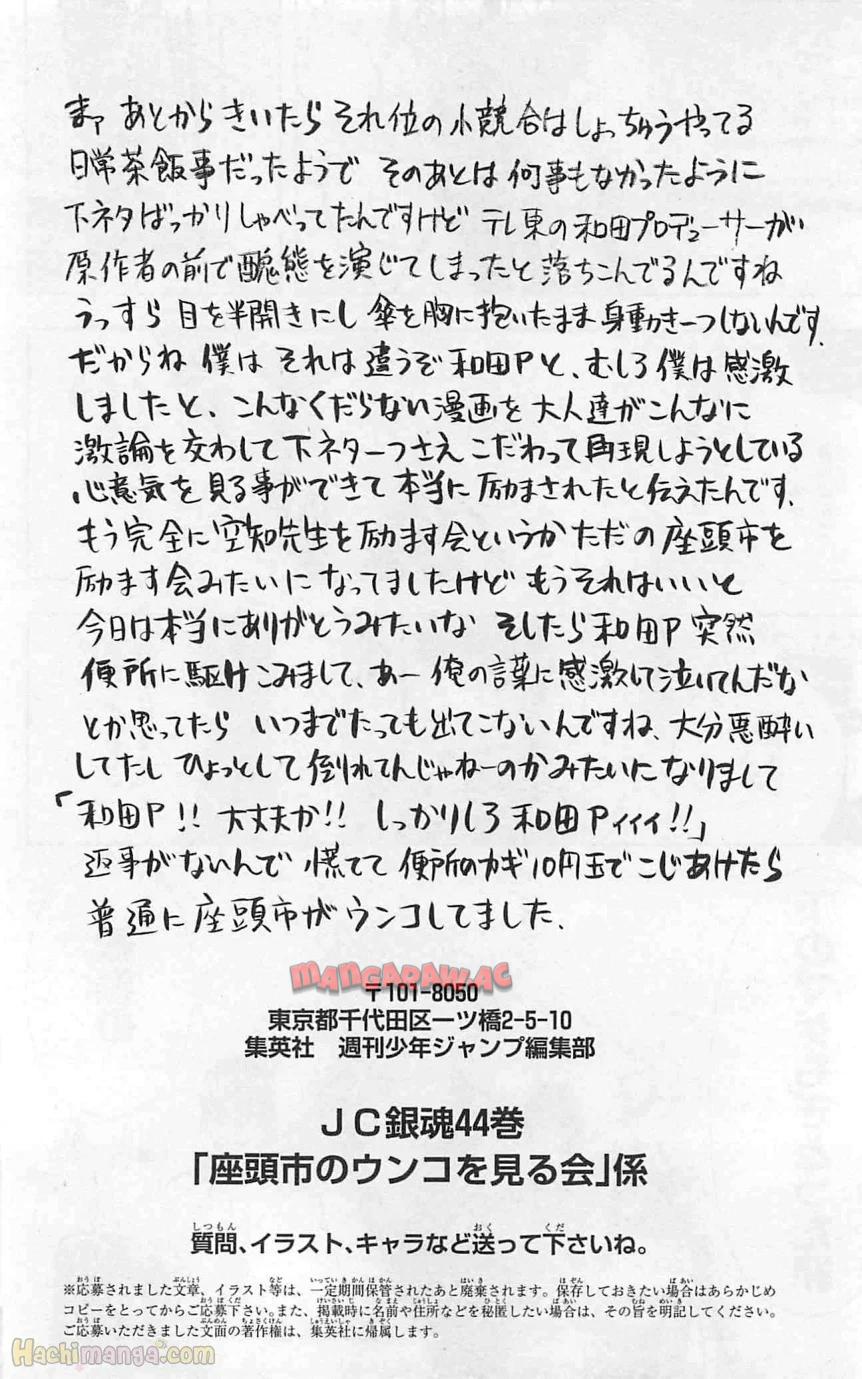 まァ あとからきいたら それ位の小競合はしょっちゅうやってる
日常茶飯事だったようで そのあとは何事もなかったように
下ネタばっかりしゃべってたんですけど テレ東の和田プロデューサーが
原作者の前で醜態を演じてしまったと落ちこんでるんですね
うっすら 目を半開きにし 傘を胸に抱いたまま 身動き一つしないんです.
だからね 僕は それは違うぞ 和田Pと、むしろ僕は感激
しましたと、こんなくだらない漫画を大人達がこんなに
激論を交わして下ネタ一つさえ こだわって再現しようとしている
心意気を見る事ができて本当に励まされたと伝えたんです.
もう完全に空知先生を励ます会というか ただの座頭市を
励ます会みたいになってましたけど もうそれはいいと
今日は本当にありがとうみたいな そしたら和田P 突然
便所に駆けこみまして、あー俺の言葉に感激して泣いてんだな
とか思ってたら いつまでたっても出てこないんですね、大分悪酔い
してたし ひょっとして倒れてんじゃねーのかみたいになりまして
「和田P!! 大丈夫か!! しっかりしろ和田Pィィィ!!」
返事がないんで 慌てて便所のカギ10円玉でこじあけたら
普通に座頭市がウンコしてました.
MANGARAW.AC
〒101-8050
東京都千代田区一ツ橋2-5-10
集英社 週刊少年ジャンプ編集部
JC銀魂44巻
「座頭市のウンコを見る会」係
質問、イラスト、キャラなど送って下さいね。
※応募されました文章、イラスト等は、一定期間保管されたあと廃棄されます。保存しておきたい場合はあらかじめ
コピーをとってからご応募下さい。また、掲載時に名前や住所などを秘匿したい場合は、その旨を明記してください。
ご応募いただきました文面の著作権は、集英社に帰属します。
Hachimanga.com